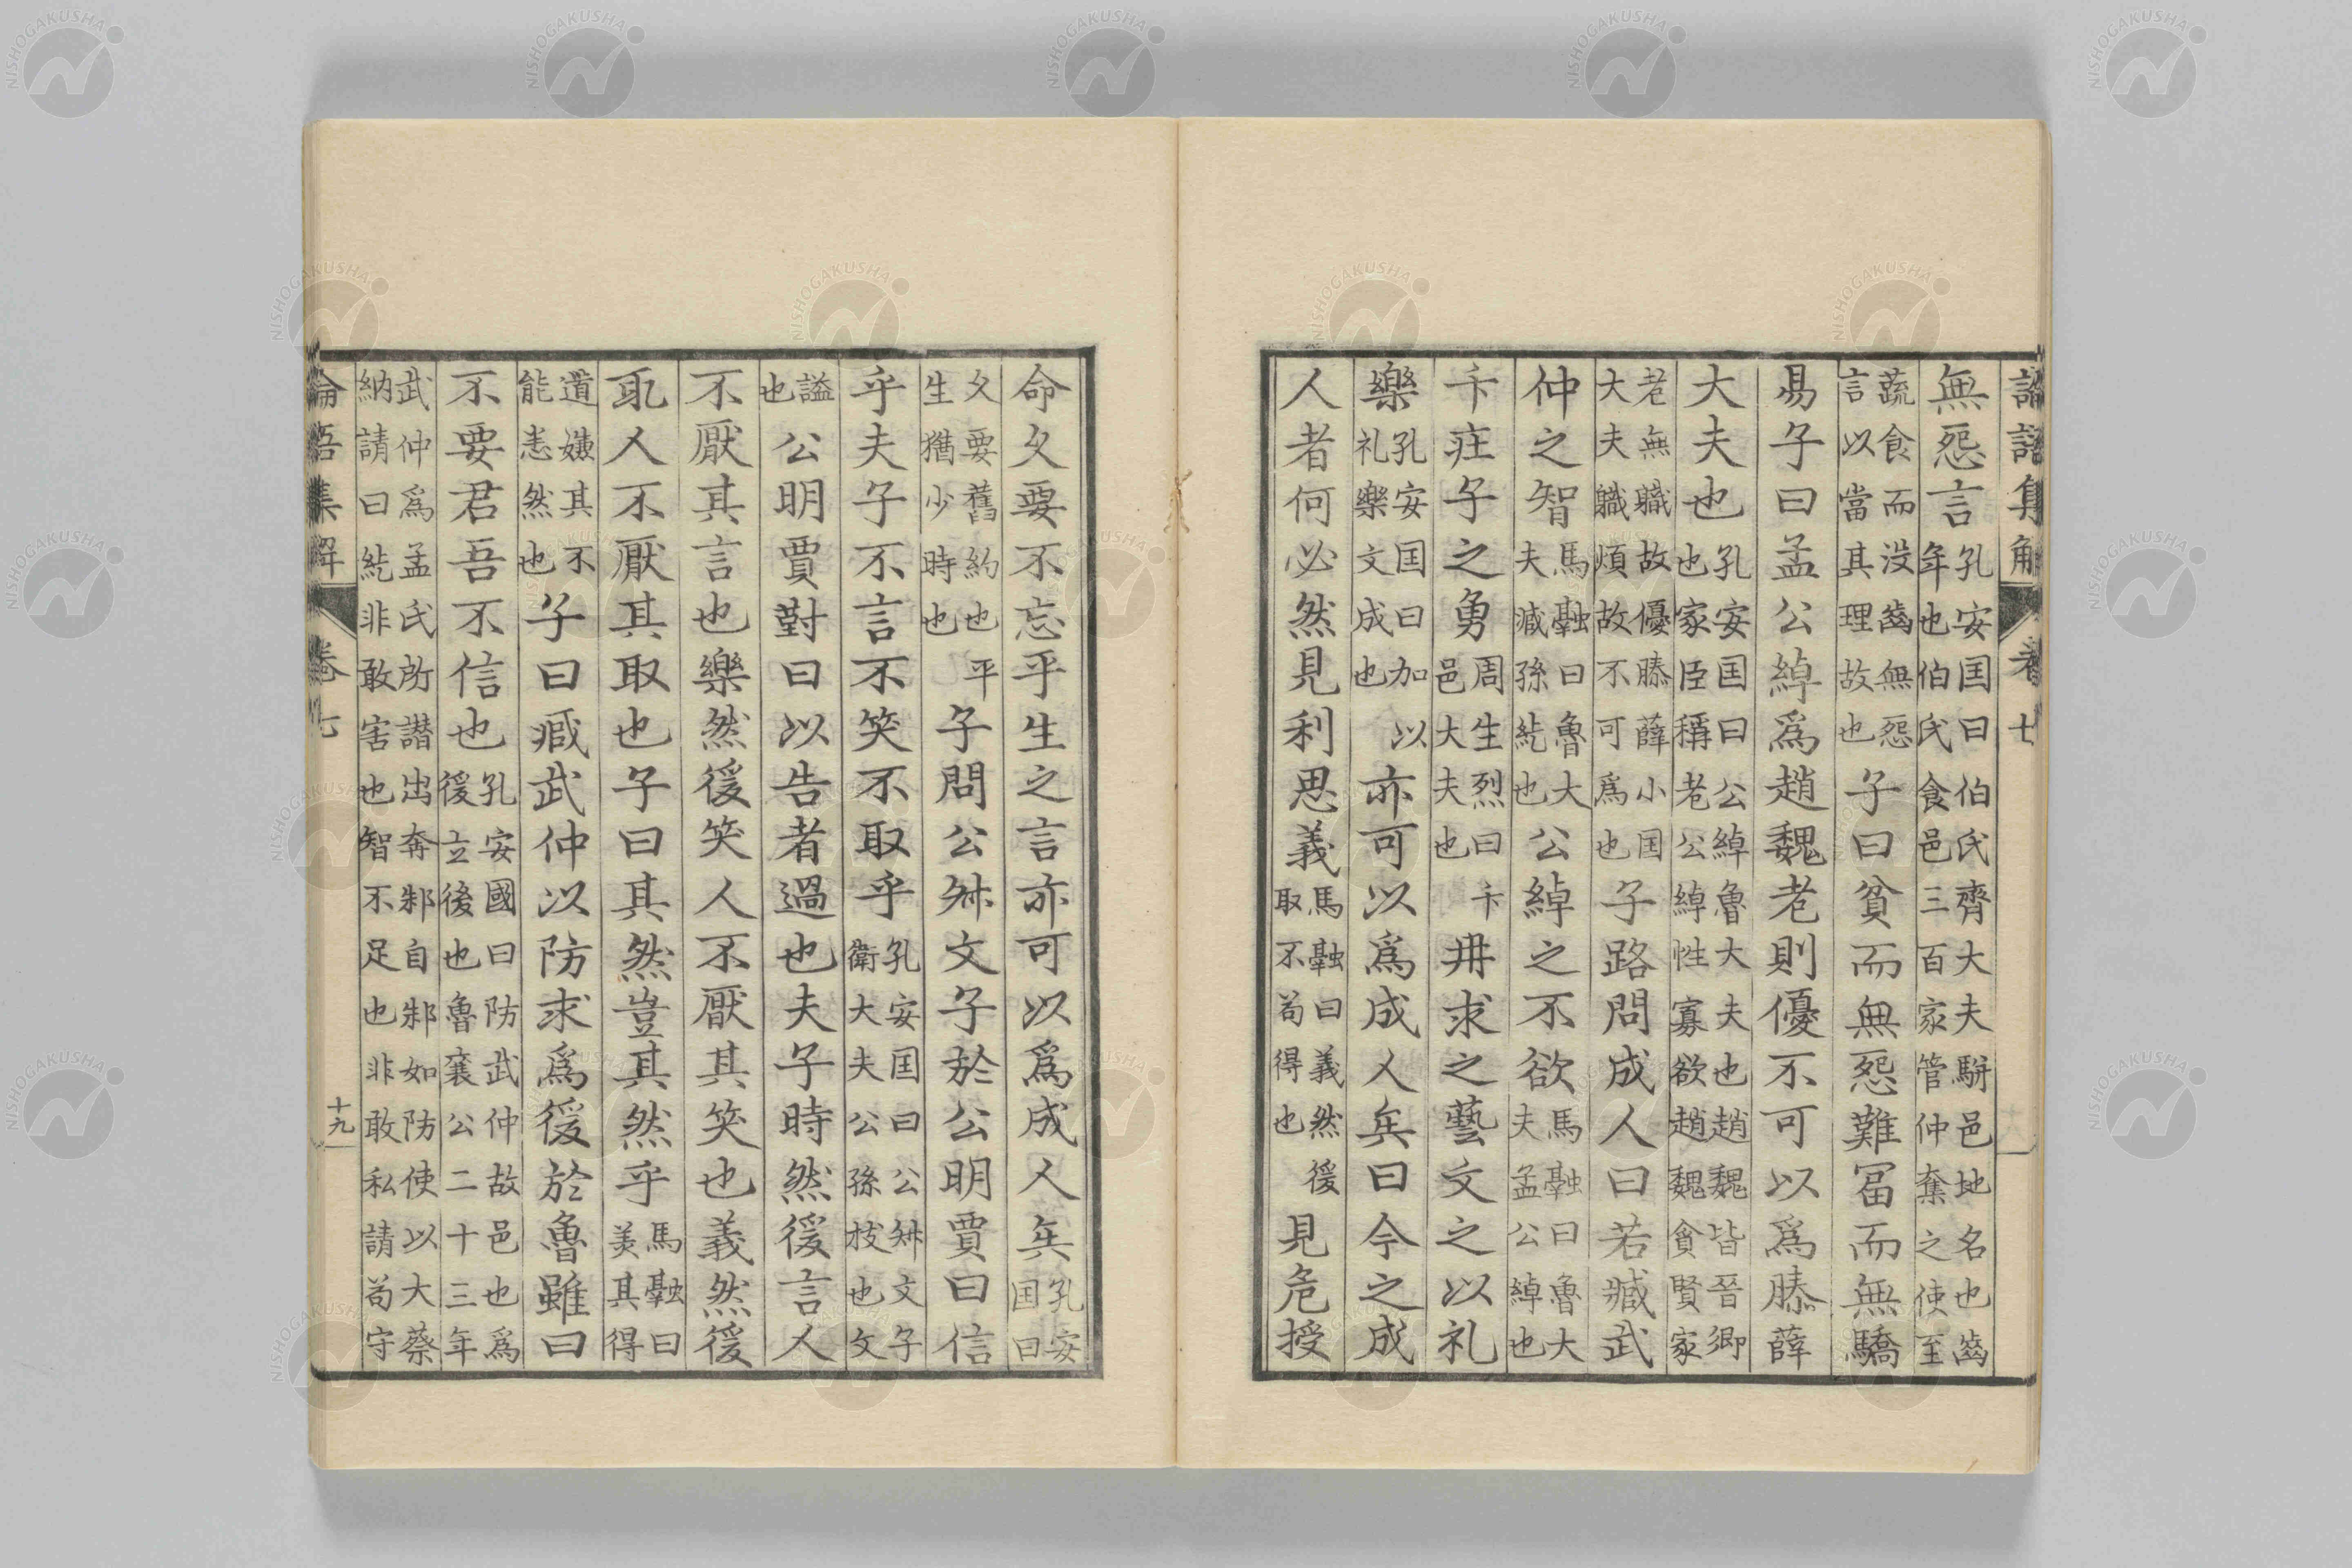 論語集解 卷七
無怨言孔安国曰伯氏齊大夫駢邑地名也齒年也伯氏食邑三百家管仲奪之使至
蔬食而没齒無怨言以當其理故也子曰貧而無怨難冨而無驕
易子曰孟公綽爲趙魏老則優不可以爲滕薛
大夫也孔安国曰公綽魯大夫也趙魏皆晉卿也家臣稱老公綽性寡欲趙魏貪賢家
老無職故優滕薛小国大夫職煩故不可爲也子路問成人曰若臧武
仲之智馬融曰魯大夫臧孫紇也公綽之不欲馬融曰魯大夫孟公綽也
卞莊子之勇周生烈曰卞邑大夫也冉求之藝文之以礼
樂孔安国曰加以礼樂文成也亦可以爲成人矣曰今之成
人者何必然見利思義馬融曰義然後取不苟得也見危授
命久要不忘乎生之言亦可以爲成人矣孔安国曰
久要舊約也平生猶少時也子問公叔文子於公明賈曰信
乎夫子不言不笑不取乎孔安国曰公叔文子衛大夫公孫枝也文
謚也公明賈對曰以告者過也夫子時然後言人
不厭其言也樂然後笑人不厭其笑也義然後
取人不厭其取也子曰其然豈其然乎馬融曰美其得
道嫌其不能悉然也子曰臧武仲以防求爲後於魯雖曰
不要君吾不信也孔安國曰防武仲故邑也爲後立後也魯襄公二十三年
武仲爲孟氏所譖出奔邾自邾如防使以大蔡納請曰紇非敢害也智不足也非敢私請苟守
論語集解 卷七 十九